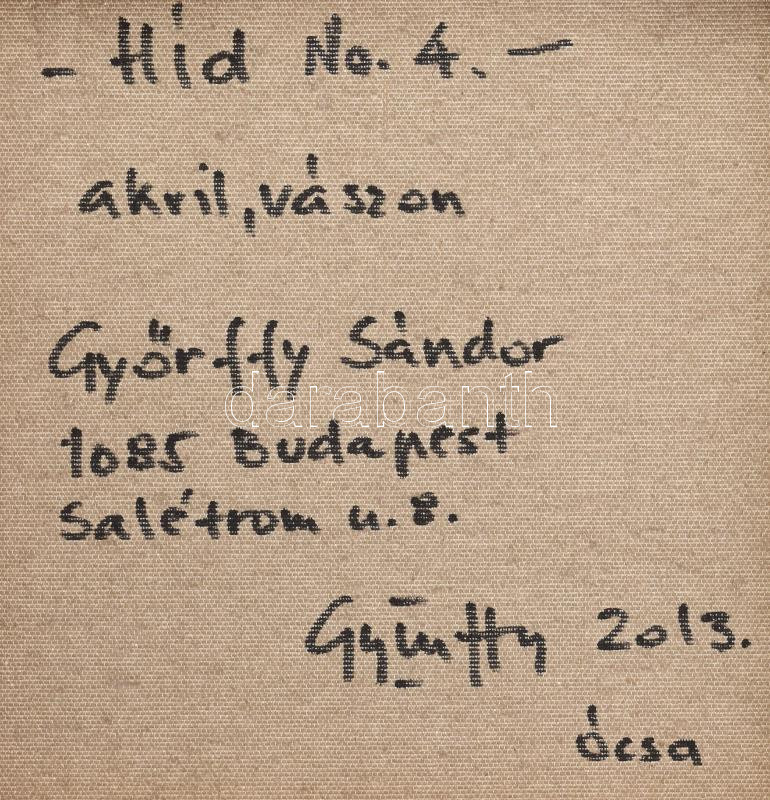 - Híd No. 4. -
akril, vászon
Győrffy Sándor
darabanth
1085 Budapest
Salétrom u. 8.
Győrffy 2013.
Ócsa